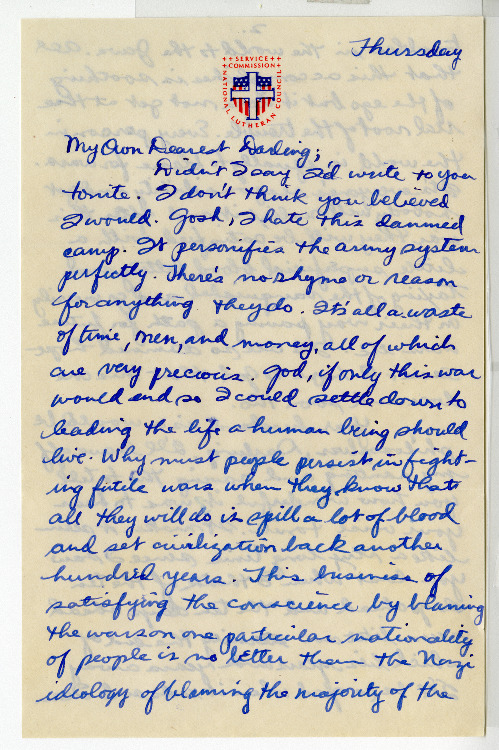 Thursday
SERVICE
COMMISSION
NATIONAL LUTHERAN COUNCIL
My Own Dearest Darling;
Didn't I say I'd write to you
tonite. I don't think you believed
I would. Gosh, I hate this damned
camp. It personifies the army system
perfectly. There's no rhyme or reason
for anything they do. It's all a waste
of time, men, and money, all of which
are very precious. God, if only this war
would end so I could settle down to
leading the life a human being should
live. Why must people persist in fight-
ing futile wars when they know that
all they will do is spill a lot of blood
and set civilization back another
hundred years. This business of
satisfying the conscience by blaming
the wars on one particular nationality
of people is no better than the Nazi
ideology of blaming the majority of the